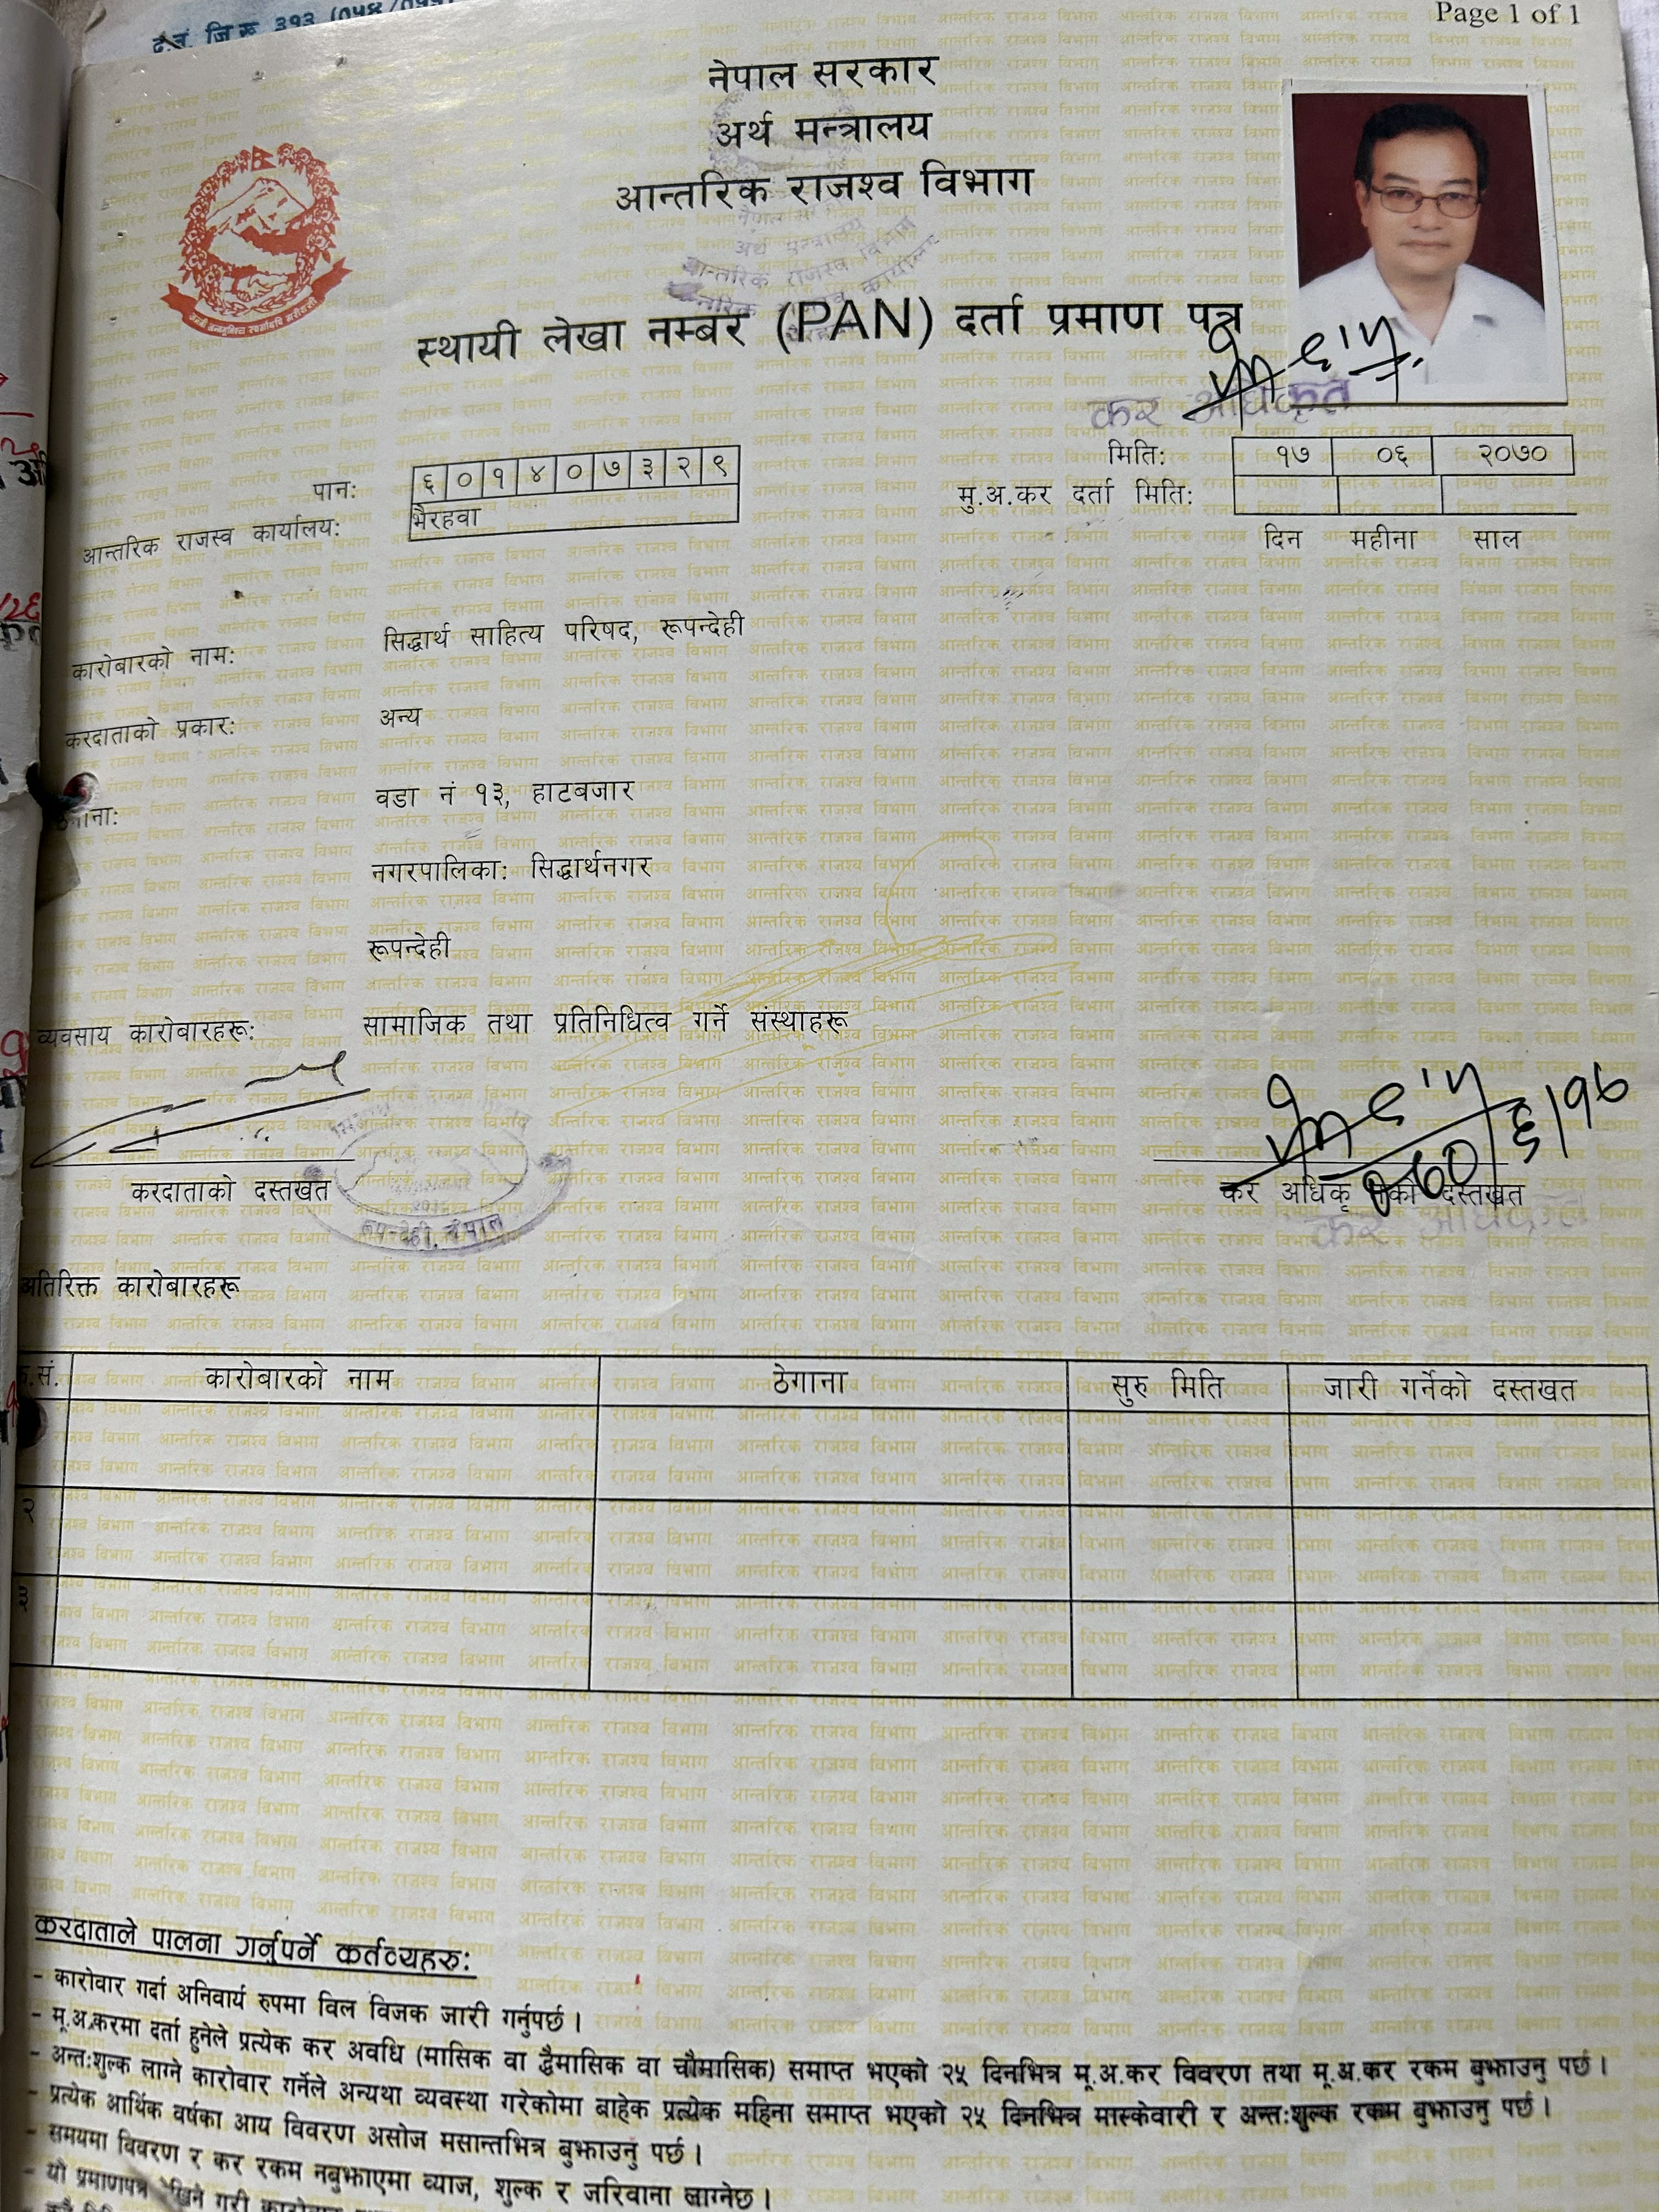 द.नं. जि.रू ३१३
Page 1 of 1
नेपाल सरकार
अर्थ मन्त्रालय
आन्तरिक राजश्व विभाग
स्थायी लेखा नम्बर (PAN) दर्ता प्रमाण पत्र
कर अधिकृत
पान: ६०१४०७३२९
मिति: १७ ०६ २०७०
आन्तरिक राजस्व कार्यालय: भैरहवा
मु.अ.कर दर्ता मिति:
दिन महीना साल
कारोबारको नाम: सिद्धार्थ साहित्य परिषद, रूपन्देही
करदाताको प्रकार: अन्य
वडा नं १३, हाटबजार
नगरपालिका: सिद्धार्थनगर
रूपन्देही
व्यवसाय कारोबारहरू: सामाजिक तथा प्रतिनिधित्व गर्ने संस्थाहरू
करदाताको दस्तखत
रूपन्देही, नेपाल
कर अधिकृतको दस्तखत
कर अधिकृत
अतिरिक्त कारोबारहरू
क्र.सं. कारोबारको नाम ठेगाना सुरु मिति जारी गर्नेको दस्तखत
२
३
करदाताले पालना गर्नुपर्ने कर्तव्यहरु:
- कारोवार गर्दा अनिवार्य रुपमा विल विजक जारी गर्नुपर्छ ।
- मू.अ.करमा दर्ता हुनेले प्रत्येक कर अवधि (मासिक वा द्वैमासिक वा चौमासिक) समाप्त भएको २५ दिनभित्र मू.अ.कर विवरण तथा मू.अ.कर रकम बुझाउनु पर्छ ।
- अन्त:शुल्क लाग्ने कारोवार गर्नेले अन्यथा व्यवस्था गरेकोमा बाहेक प्रत्येक महिना समाप्त भएको २५ दिनभित्र मास्केवारी र अन्त:शुल्क रकम बुझाउनु पर्छ ।
- प्रत्येक आर्थिक वर्षका आय विवरण असोज मसान्तभित्र बुझाउनु पर्छ ।
- समयमा विवरण र कर रकम नबुझाएमा व्याज, शुल्क र जरिवाना लाग्नेछ ।
- यो प्रमाणपत्र